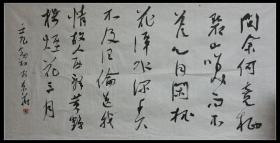 问余何意栖
碧山笑而不
答心自闲桃
花潭水深千尺
不及汪伦送我
情故人西辞黄鹤
楼烟花三月